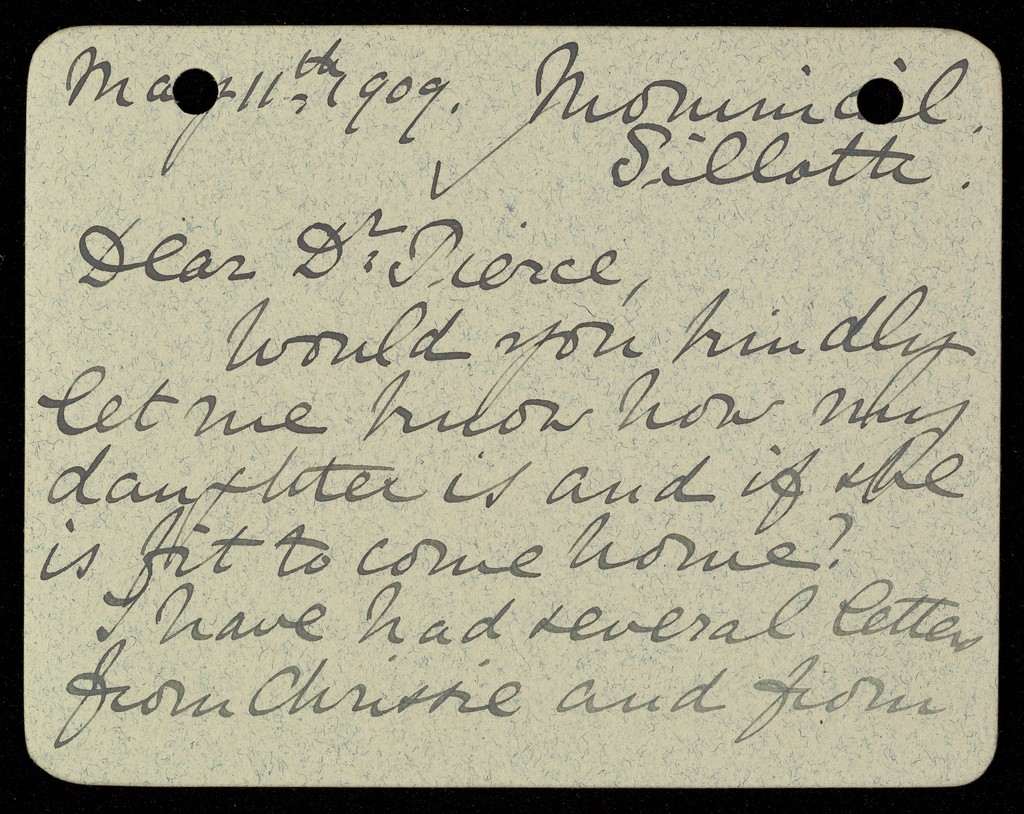 May 11th. 1909.
Silloth.
Dear Dr. Pierce,
Would you kindly
let me know how my
daughter is and if she
is fit to come home?
I have had several letters
from Christie and from